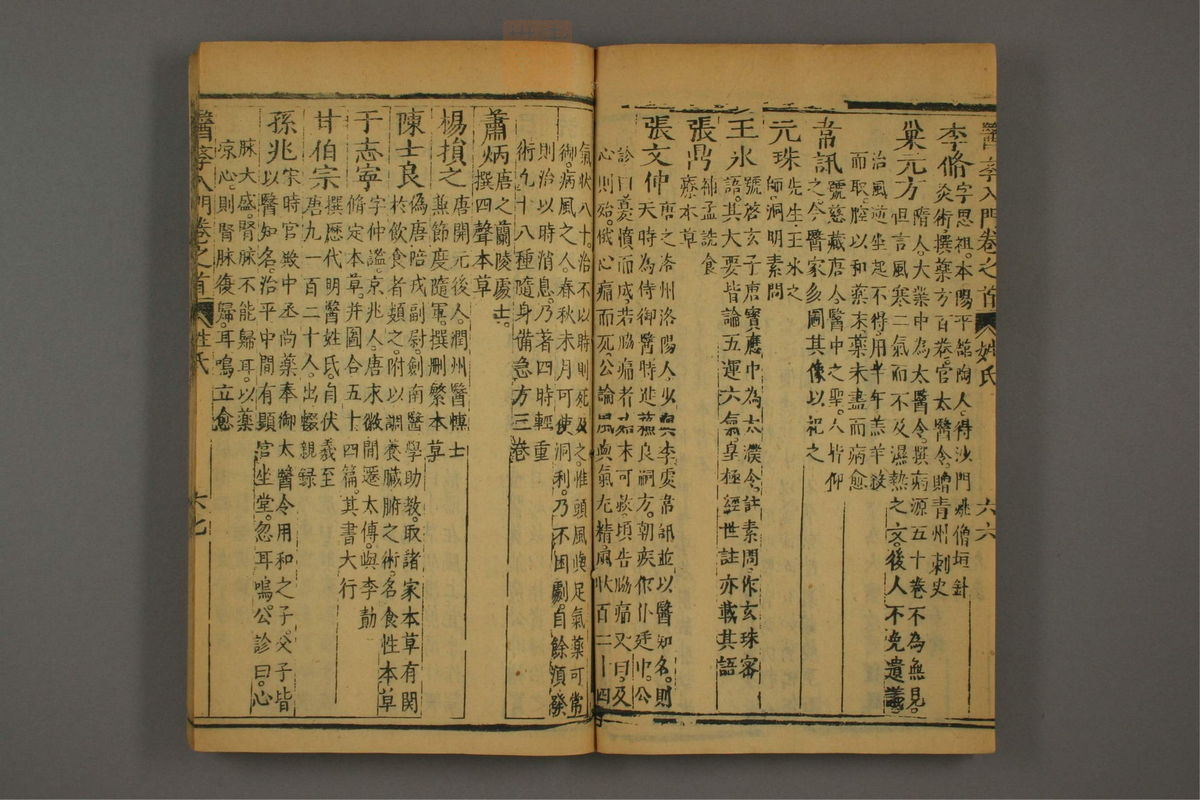 醫學入門卷之首 姓氏 六六
李脩 字思祖。本陽平館陶人。得沙門姚僧垣針
灸術。撰藥方百卷。官太醫令。贈青州刺史
巢元方 隋人。大業中為太醫令。撰病源五十卷不為無見。
但言風寒二氣而不及濕熱之文。後人不免遺議。
治風逆坐起不得。用半年羔羊殺
而取腔以和藥末藥未盡而病愈
韋訊 號慈藏唐人。醫中之聖。人皆仰
之。今醫家多圖其像以祀之
元珠 先生。王冰之
師。洞明素問
王冰 號啓玄子唐寶應中為太濮令。註素問。作玄珠密
語。其大要皆論五運六氣。皇極經世註亦載其語
張鼎 補孟詵食
療本草
張文仲 唐之洛州洛陽人。少與李虔韋訊並以醫知名。則
天時為侍御醫時進蘇良嗣方。朝疾作仆廷中。公
診曰憂憤而成。若脇痛者殆未可救。頃告脇痛又曰。及
心則殆。俄心痛而死。公論風與氣尤精。風狀百二十四
氣狀八十。治不以時則死及之。惟頭風與足氣藥可常
御。病風之人。春秋末月可使洞利。乃不困劇。自餘須發
則治以時消息。乃著四時輕重
術九十八種隨身備急方三卷
蕭炳 唐之蘭陵處士。
撰四聲本草
楊損之 唐開元後人。潤州醫愽士
兼節度隨軍。撰刪繁本草
陳士良 偽唐陪戎副尉。劍南醫學助教。取諸家本草有関
於飲食者類之。附以調養臟腑之術。名食性本草
于志寧 字仲謐。京兆人。唐永微間遷太傅。與李勣
脩定本草。并圖合五十四篇。其書大行
甘伯宗 撰歷代明醫姓氏。自伏羲至
唐九一百二十人。出輟親錄
孫兆 宋時官殿中丞尚藥奉御太醫令用和之子。父子皆
以醫知名。治平中間有顯官坐堂。忽耳鳴。公診曰。心
脉大盛。腎脉不能歸耳。以藥
凉心。則腎脉復歸。耳鳴立愈
醫學入門卷之首 姓氏 六七